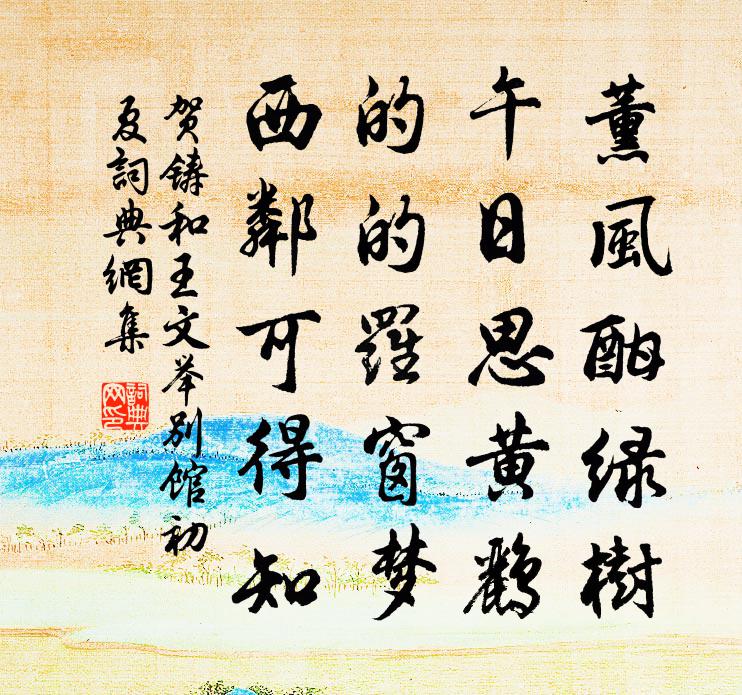 薰風酣绿樹
午日思黄鸝
的的羅窗梦
西鄰可得知
贺鑄和王文举别馆初
夏詞典網集
詞典網印